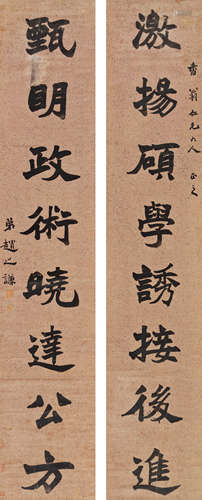 激揚碩學誘接後進
翁仁兄大人正之
甄明政術曉達公方
弟趙之謙